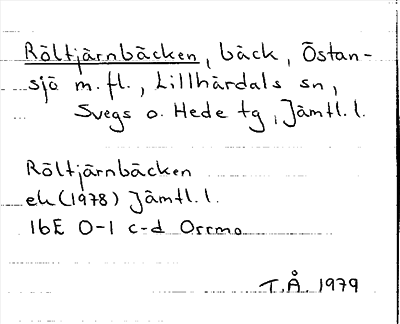 Röltjärnbäcken, bäck, Östan-
sjö m.fl., Lillhärdals sn,
Svegs o. Hede tg, Jämtl. l.
Röltjärnbäcken
ek (1978) Jämtl. l.
16E 0-1 c-d Orrmo
T.Å. 1979